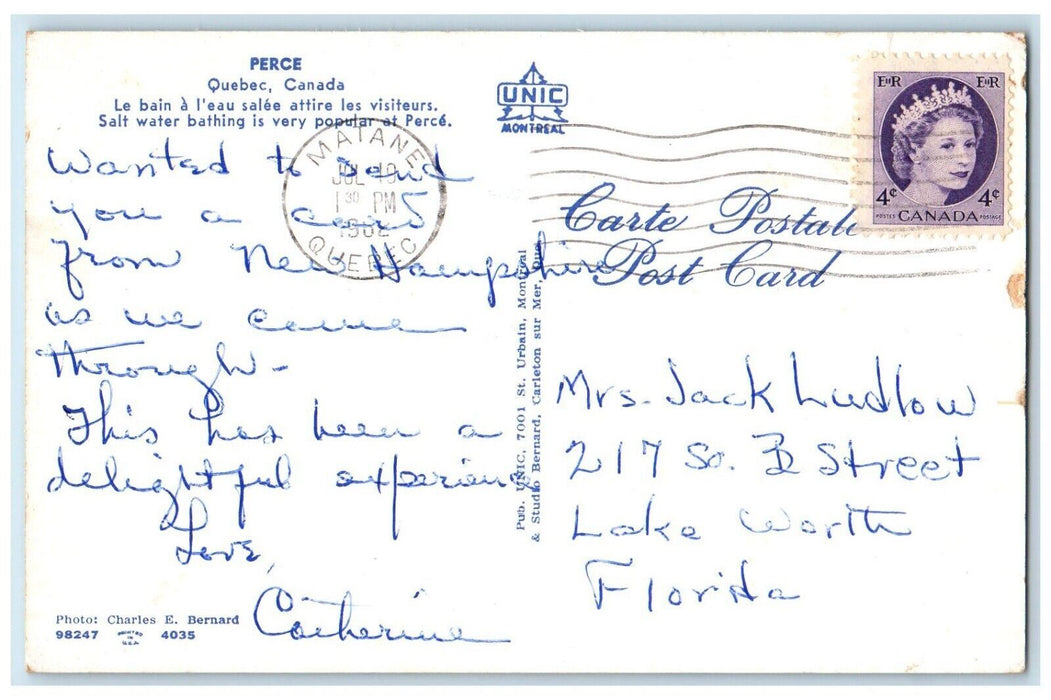 PERCE
Quebec, Canada
Le bain à l'eau salée attire les visiteurs.
Salt water bathing is very popular at Percé.
UNIC
MONTREAL
MATANE
JUL 19
1 30 PM
1962
QUEBEC
E II R E II R
4¢ 4¢
POSTES CANADA POSTAGE
Carte Postale
Post Card
Wanted to send
you a card
from New Hampshire
as we came
through -
This has been a
delightful experience
Love,
Catherine
Pub. UNIC, 7001 St. Urbain, Montreal
& Studio Bernard, Carleton sur Mer, Que.
Mrs. Jack Ludlow
217 So. B Street
Lake Worth
Florida
Photo: Charles E. Bernard
98247 PRINTED IN U.S.A. 4035